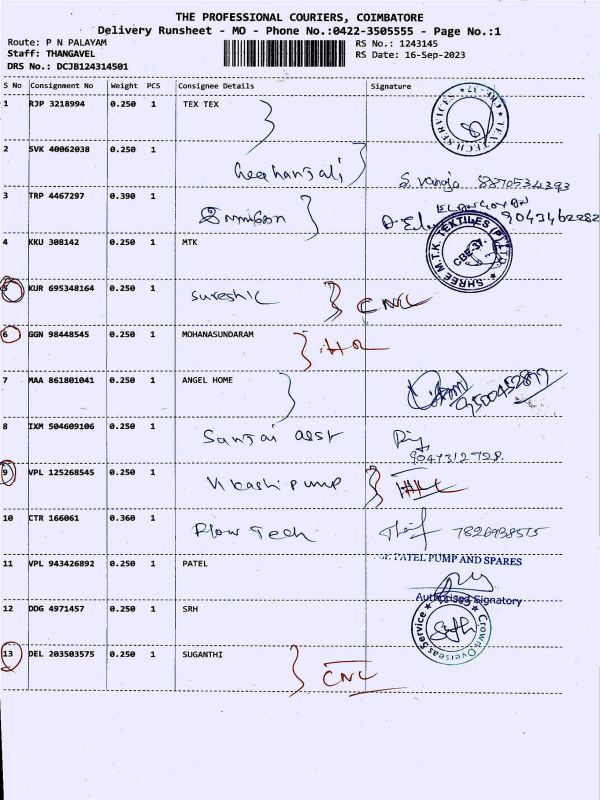 THE PROFESSIONAL COURIERS, COIMBATORE
Delivery Runsheet - MO - Phone No.:0422-3505555 - Page No.:1
Route: P N PALAYAM
Staff: THANGAVEL
DRS No.: DCJB124314501
RS No.: 1243145
RS Date: 16-Sep-2023
S No Consignment No Weight PCS Consignee Details Signature
1 RJP 3218994 0.250 1 TEX TEX
TEX TECH SERVICES CBE-37
2 SVK 40062038 0.250 1
Geethanjali S. Vanaja
3 TRP 4467297 0.390 1
4 KKU 308142 0.250 1 MTK
SHREE M.T.K. TEXTILES (P) LTD. CBE-37
5 KUR 695348164 0.250 1 Suresh K CNC
6 GGN 98448545 0.250 1 MOHANASUNDARAM
7 MAA 861801041 0.250 1 ANGEL HOME
8 IXM 504609106 0.250 1 Sanjai asst
9047312728
9 VPL 125268545 0.250 1 pump
10 CTR 166061 0.360 1 Flow Tech
11 VPL 943426892 0.250 1 PATEL
PATEL PUMP AND SPARES
Authorised Signatory
12 DDG 4971457 0.250 1 SRH
Crown Overseas Service
13 DEL 203503575 0.250 1 SUGANTHI CNC